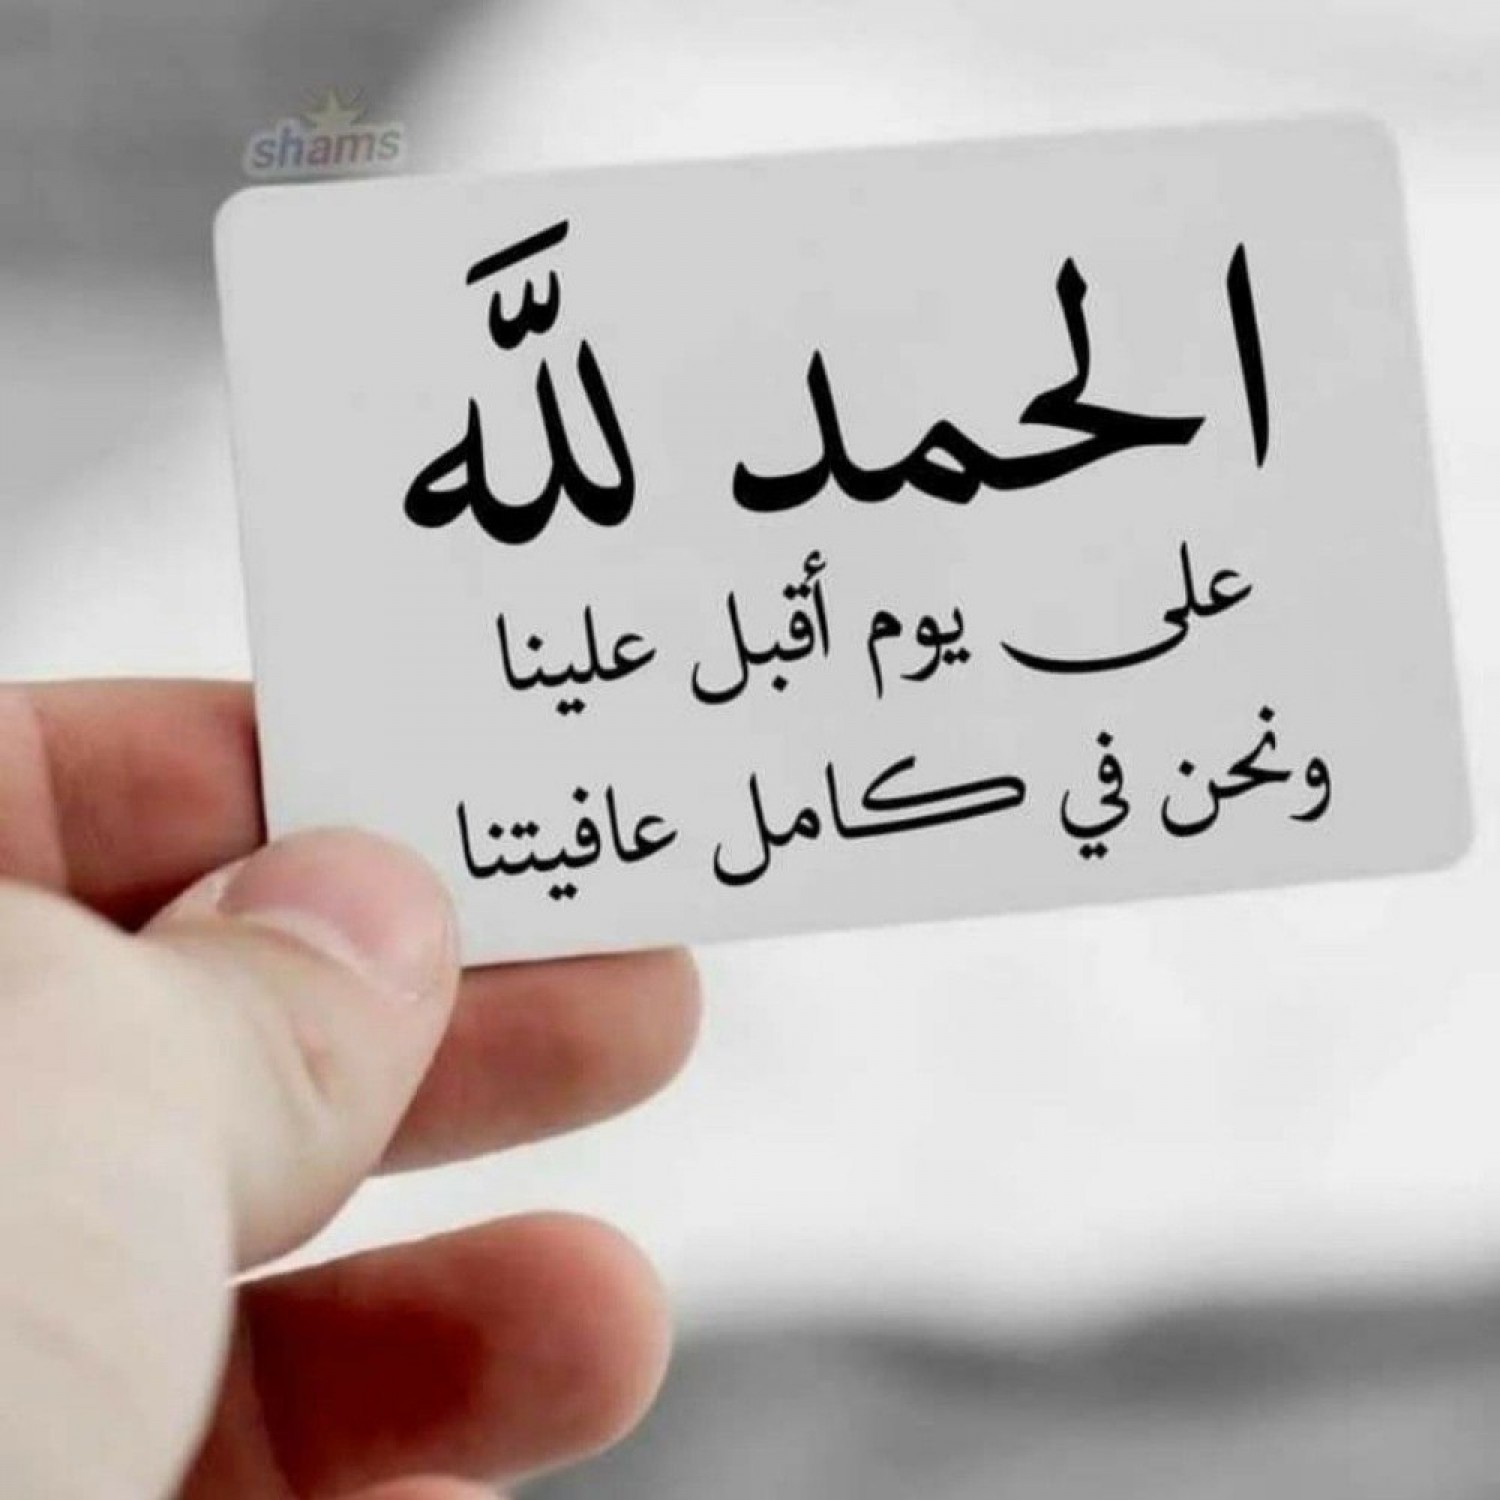 shams
الحمد للّٰه
على يوم أقبل علينا
ونحن في كامل عافيتنا